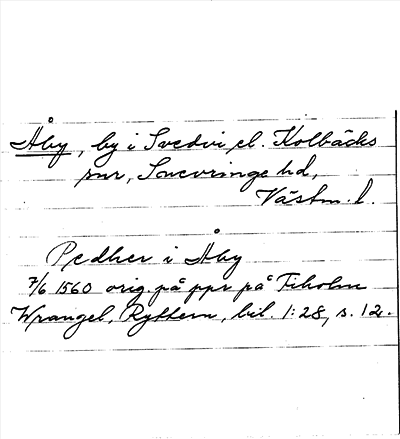 Åby, by i Svedvi el. Kolbäcks
snr, Snevringe hd,
Västm. l.
Pedher i Åby
7/6 1560 orig. på ppr på Tiholm
Wrangel, Ryttern, bil. 1:28, s. 12.